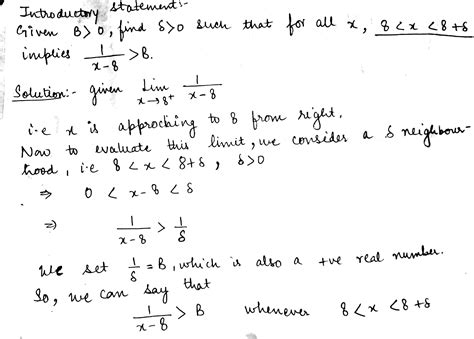 Introductory statement:-
Given B>0, find δ>0 such that for all x, 8 < x < 8+δ
implies 1/(x-8) > B.
Solution:- given Lim x→8⁺ 1/(x-8)
i.e x is approching to 8 from right.
Now to evaluate this limit, we consider a δ neighbour-
hood, i.e 8 < x < 8+δ, δ>0
⇒ 0 < x-8 < δ
⇒) 1/(x-8) > 1/δ
We set 1/δ = B, which is also a +ve real number.
So, we can say that
1/(x-8) > B whenever 8 < x < 8+δ